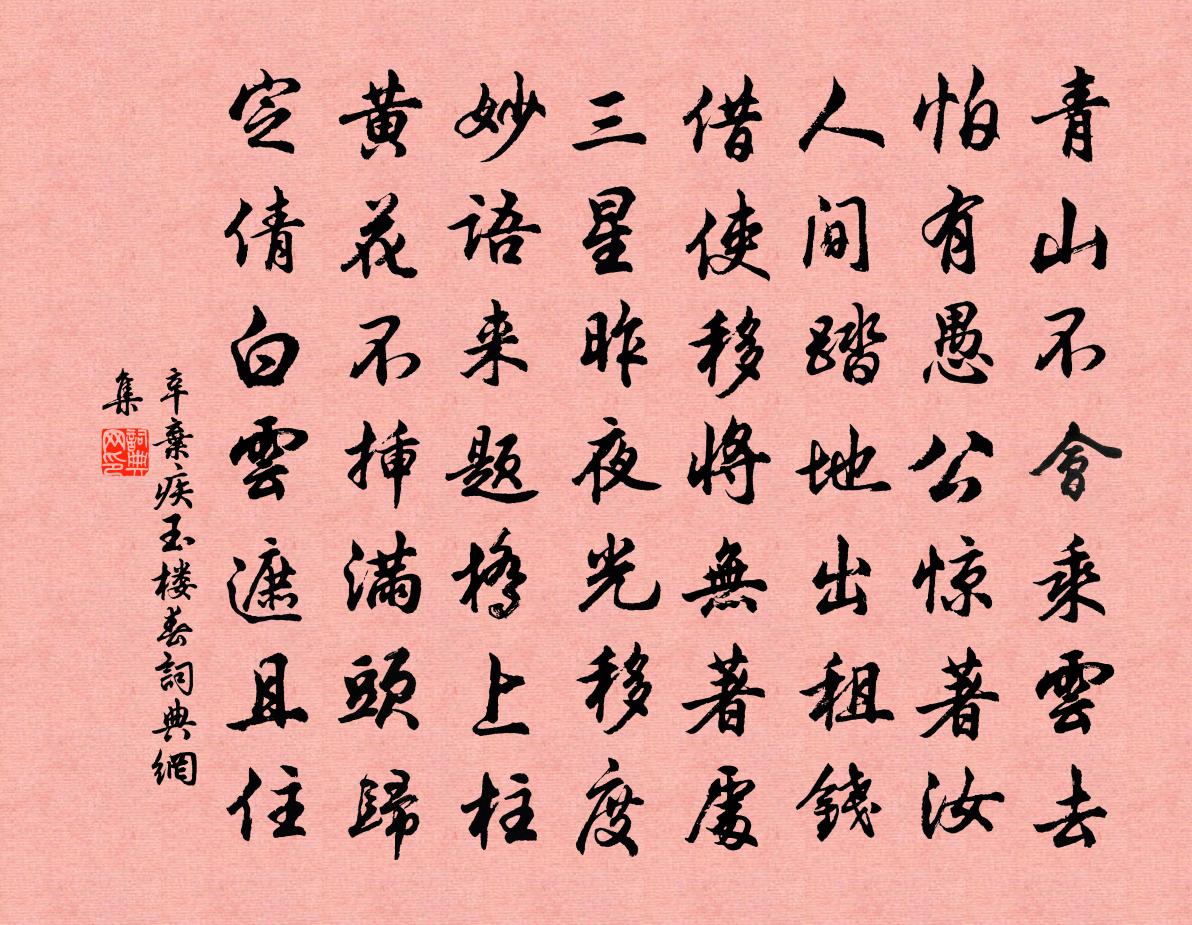 青山不會乘雲去
怕有愚公惊著汝
人间踏地出租錢
借使移将無著處
三星昨夜光移度
妙语来题橋上柱
黄花不插满頭歸
定倩白雲遮且住
辛棄疾玉楼春詞典網
集
詞典
网印